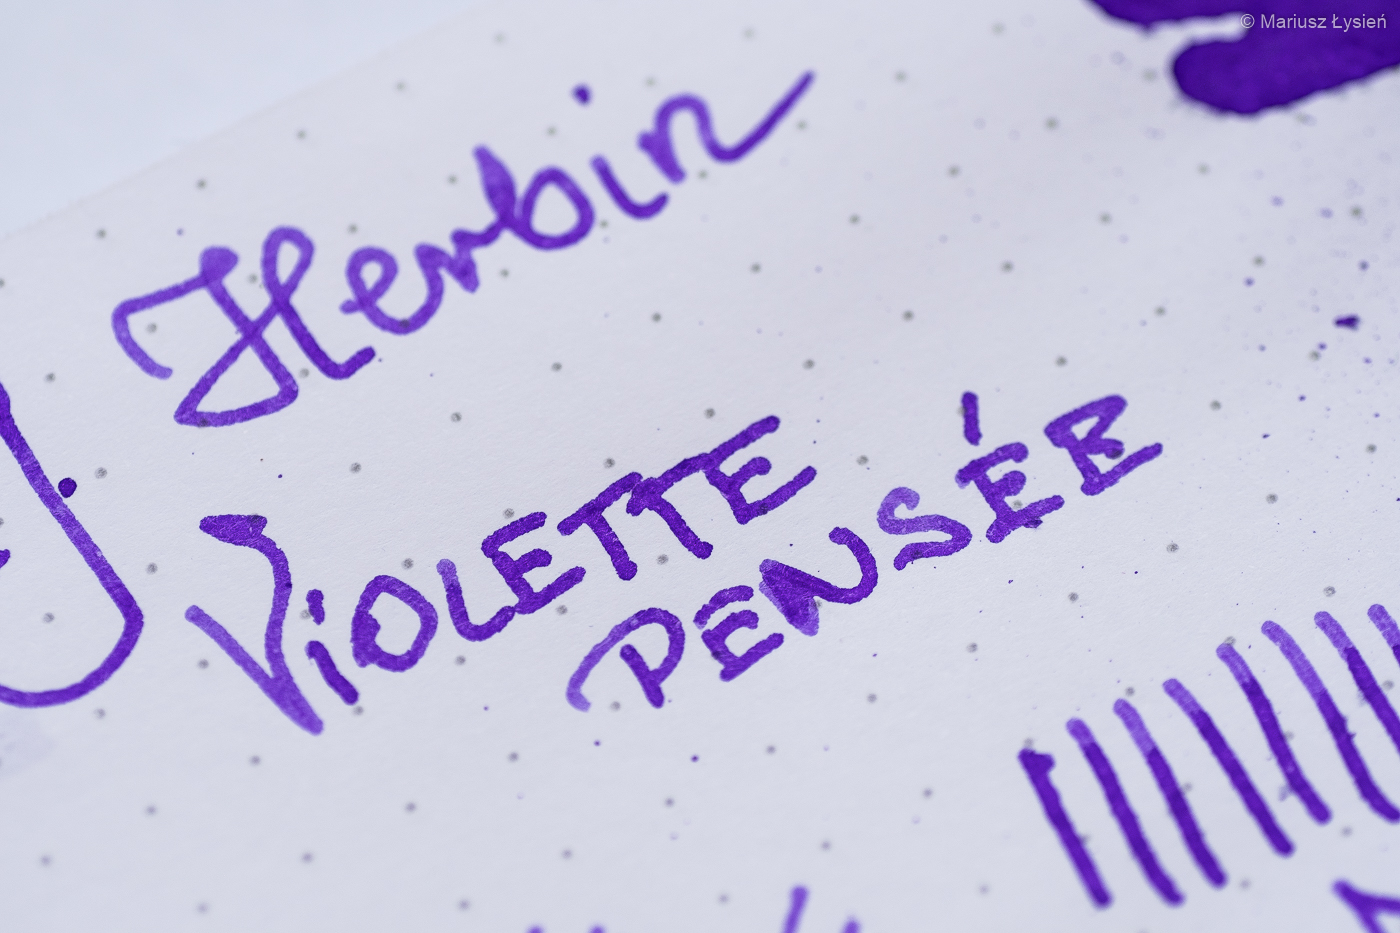 © Mariusz Łysień
Herbin
VIOLETTE
PENSÉE